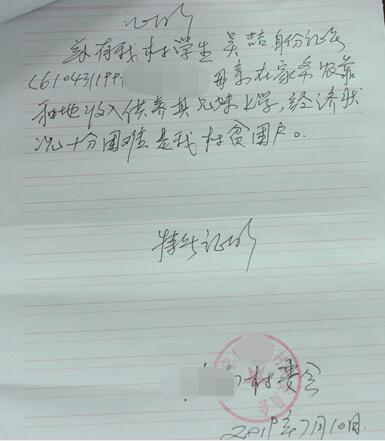 证明
兹有我村学生吴喆身份证号
(610431199 母亲在家务农靠
种地收入供养其兄妹上学,经济状
况十分困难是我村贫困户。
特此证明
村委会
2019年7月10日